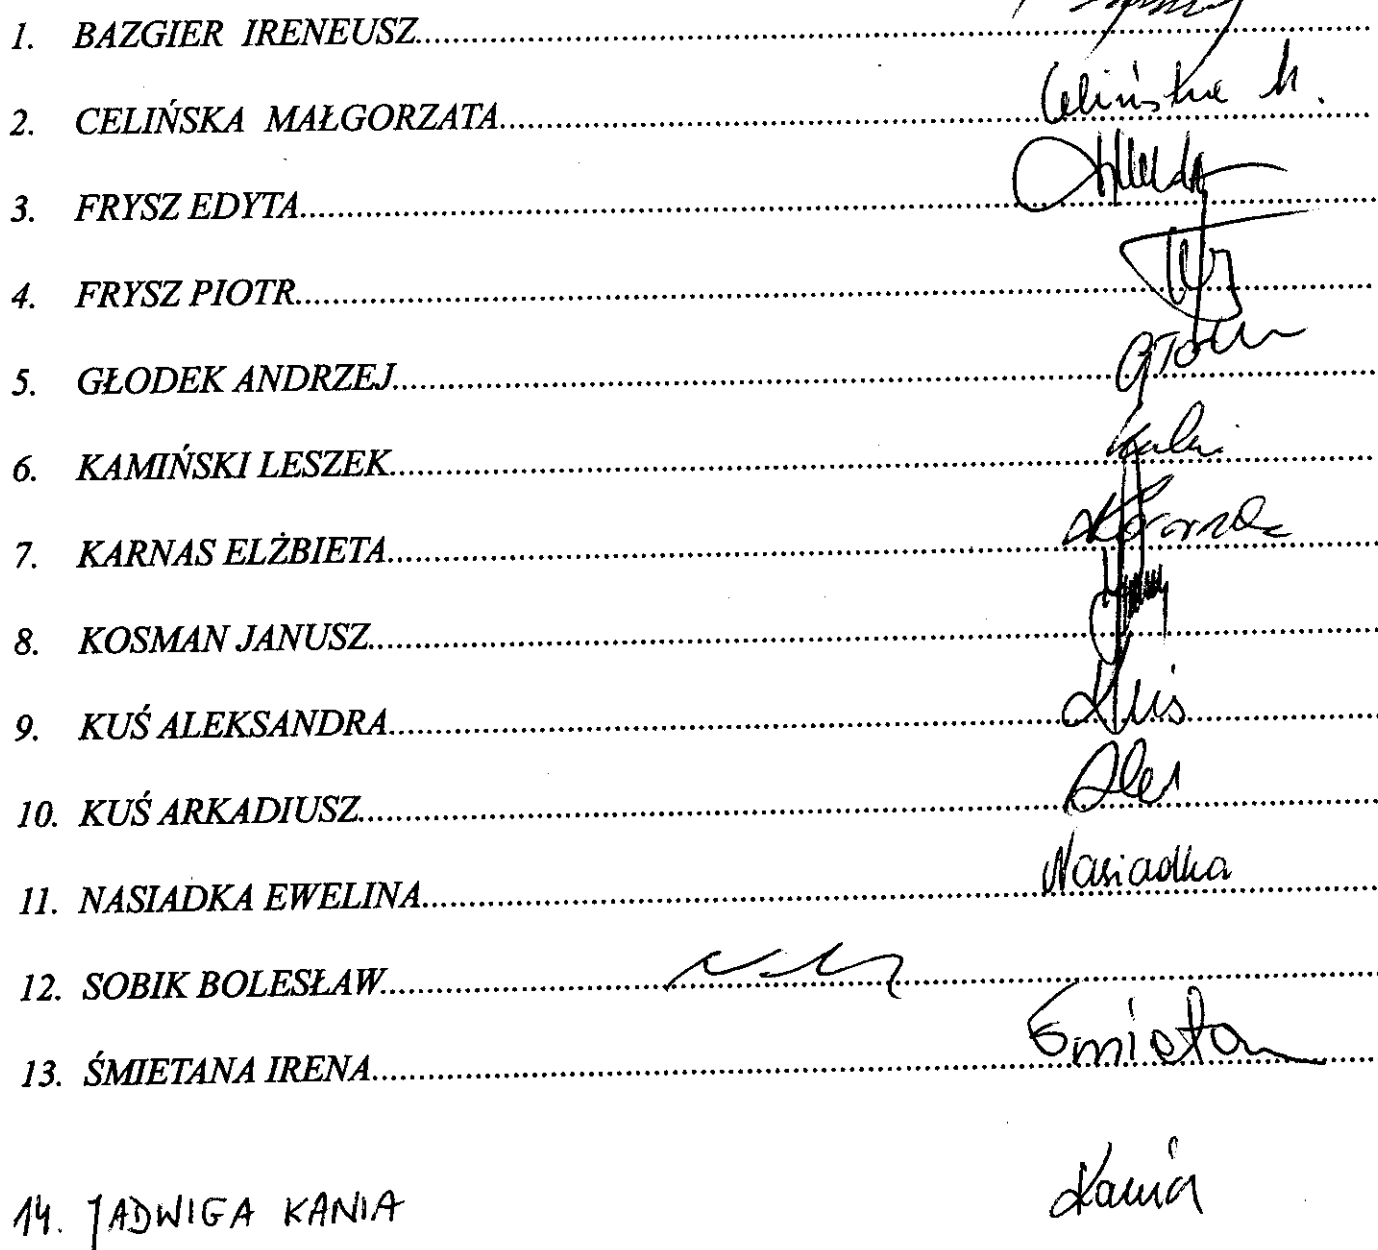 1. BAZGIER IRENEUSZ
2. CELIŃSKA MAŁGORZATA Celińska M.
3. FRYSZ EDYTA
4. FRYSZ PIOTR
5. GŁODEK ANDRZEJ
6. KAMIŃSKI LESZEK
7. KARNAS ELŻBIETA
8. KOSMAN JANUSZ
9. KUŚ ALEKSANDRA Kuś
10. KUŚ ARKADIUSZ
11. NASIADKA EWELINA Nasiadka
12. SOBIK BOLESŁAW
13. ŚMIETANA IRENA
14. JADWIGA KANIA Kania